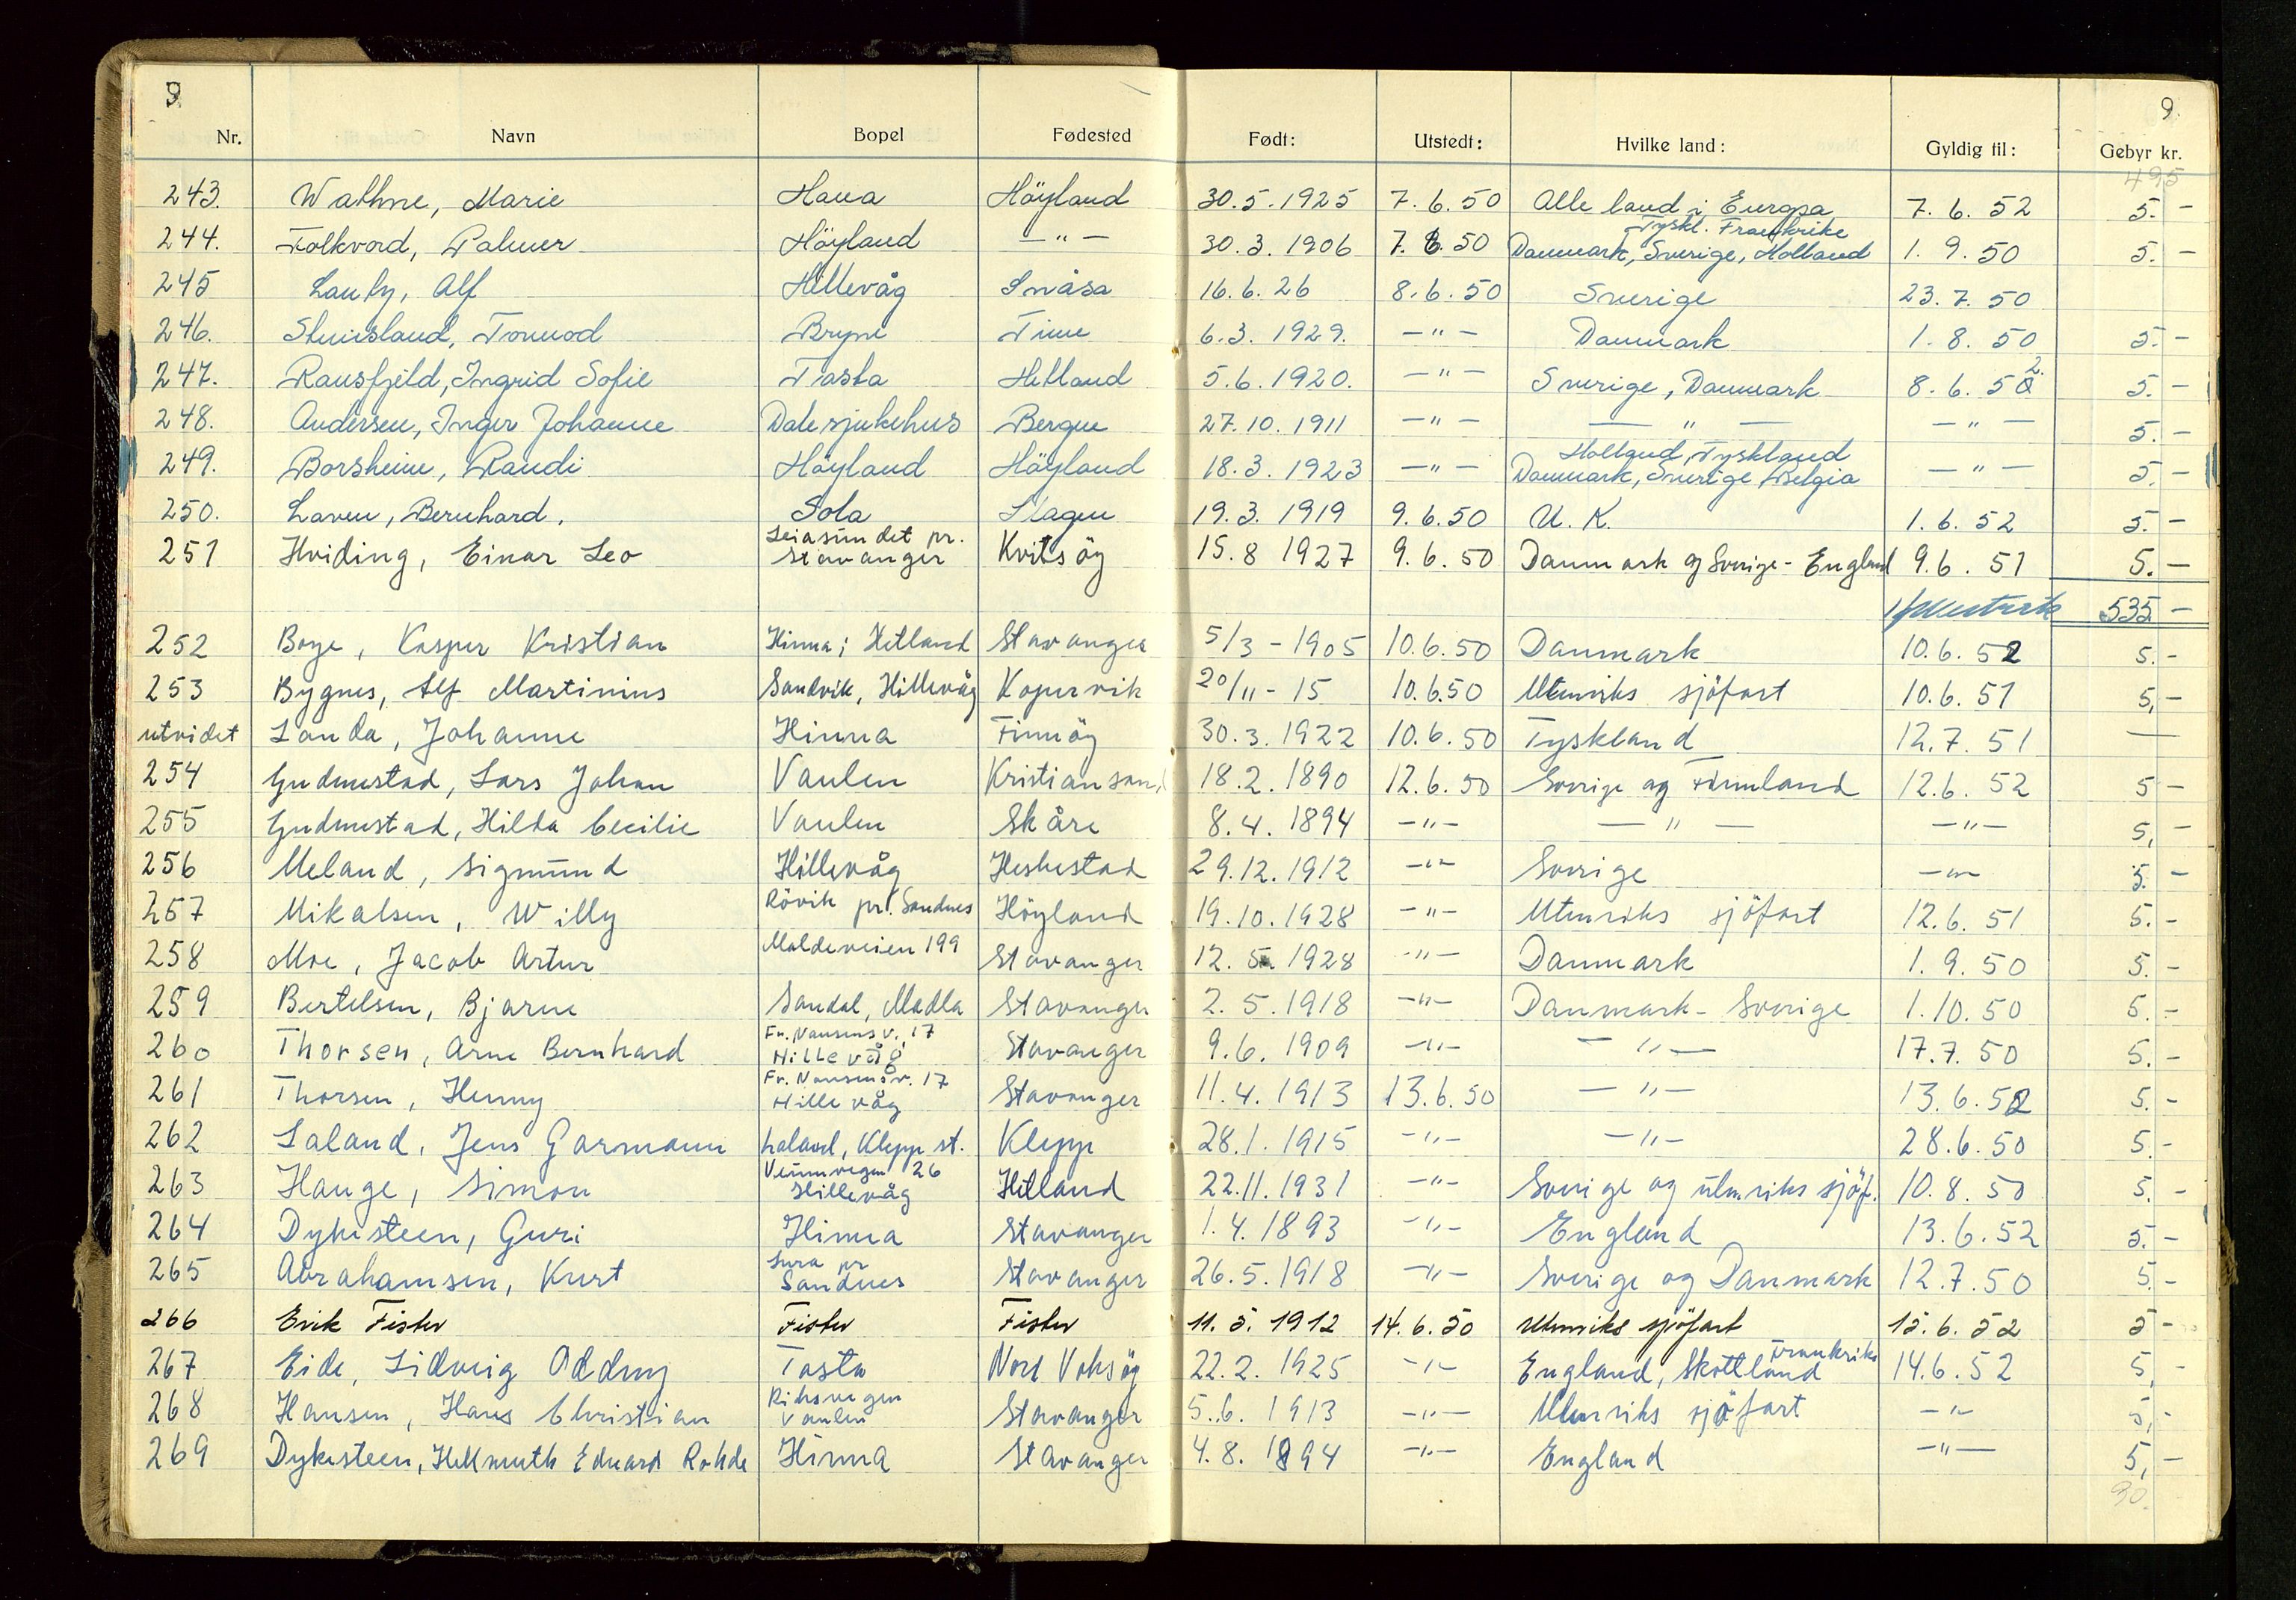 9.
9.
Nr. Navn Bopel Fødested Født: Utstedt: Hvilke land: Gyldig til: Gebyr kr.
495
243. Wathne, Marie Hana Höyland 30.5.1925 7.6.50 Alle land i Europa 7.6.52 5.-
Tyskl. Frankrike
244. Folkvord, Palmer Höyland -"- 30.3.1906 7.6.50 Danmark, Sverige, Holland 1.9.50 5.-
245 Lanky, Alf Hillevåg Snåsa 16.6.26 8.6.50 Sverige 23.7.50
246. Steinsland, Tormod Bryne Time 6.3.1929. -"- Danmark 1.8.50 5.-
247. Ravsfjeld, Ingrid Sofie Tasta Hetland 5.6.1920. -"- Sverige, Danmark 8.6.52 5.-
248. Andersen, Inger Johanne Dale sjukehus Bergen 27.10.1911 -"- -"- -"- 5.-
Holland, Tyskland
249. Borsheim, Randi Höyland Höyland 18.3.1923 -"- Danmark, Sverige, Belgia -"- 5.-
250. Laven, Bernhard. Sola Slagen 19.3.1919 9.6.50 U.K. 1.6.52 5.-
Leiasundet pr.
251 Hviding, Einar Leo Stavanger Kvitsöy 15.8 1927 9.6.50 Danmark og Sverige - England 9.6.51 5.-
535 -
252 Boye, Kasper Kristian Hinna i Hetland Stavanger 5/3 - 1905 10.6.50 Danmark 10.6.52 5.-
253 Bygnes, Alf Martinius Sandvik, Hillevåg Kopervik 20/11 - 15 10.6.50 Utenriks sjöfart 10.6.51 5,-
utvidet Landa, Johanne Hinna Finnöy 30.3.1922 10.6.50 Tyskland 12.7.51 —
254 Gudmestad, Lars Johan Vaulen Kristiansand 18.2.1890 12.6.50 Sverige og Finnland 12.6.52 5 -
255 Gudmestad, Hilda Cecilie Vaulen Skåre 8.4.1894 -"- -"- -"- 5,-
256 Meland, Sigmund Hillevåg Heskestad 29.12.1912 -"- Sverige -"- 5.-
257 Mikalsen, Willy Rövik pr. Sandnes Höyland 19.10.1928 -"- Utenriks sjöfart 12.6.51 5.-
258 Moe, Jacob Artur Maldeveien 199 Stavanger 12.5.1928 -"- Danmark 1.9.50 5.-
259 Bertelsen, Bjarne Sandal, Madla Stavanger 2.5.1918 -"- Danmark - Sverige 1.10.50 5.-
Fr. Nansens v. 17
260 Thorsen, Arne Bernhard Hillevåg Stavanger 9.6.1909 -"- -"- 17.7.50 5.-
Fr. Nansens v. 17
261 Thorsen, Henny Hillevåg Stavanger 11.4.1913 13.6.50 -"- 13.6.52 5.-
262 Laland, Jens Garmann Laland, Klepp st. Klepp 28.1.1915 -"- -"- 28.6.50 5.-
26
263 Hauge, Simon Hillevåg Hetland 22.11.1931 -"- Sverige og utenriks sjöf. 10.8.50 5.-
264 Dykesteen, Guri Hinna Stavanger 1.4.1893 -"- England 13.6.52 5.-
Lura pr
265 Abrahamsen, Kurt Sandnes Stavanger 26.5.1918 -"- Sverige og Danmark 12.7.50 5.-
266 Erik Fister Fister Fister 11.5.1912 14.6.50 Utenriks sjöfart 15.6.52 5 -
Frankrike
267 Eide, Lidveig Oddny Tasta Nord Voksöy 22.2.1925 -"- England, Skottland 14.6.52 5,-
Riksvegen
268 Hansen, Hans Christian Vaulen Stavanger 5.6.1913 -"- Utenriks sjöfart -"- 5,-
269 Dykesteen, Hellmuth Eduard Rohde Hinna Stavanger 4.8.1894 -"- England -"- 5,-
90.